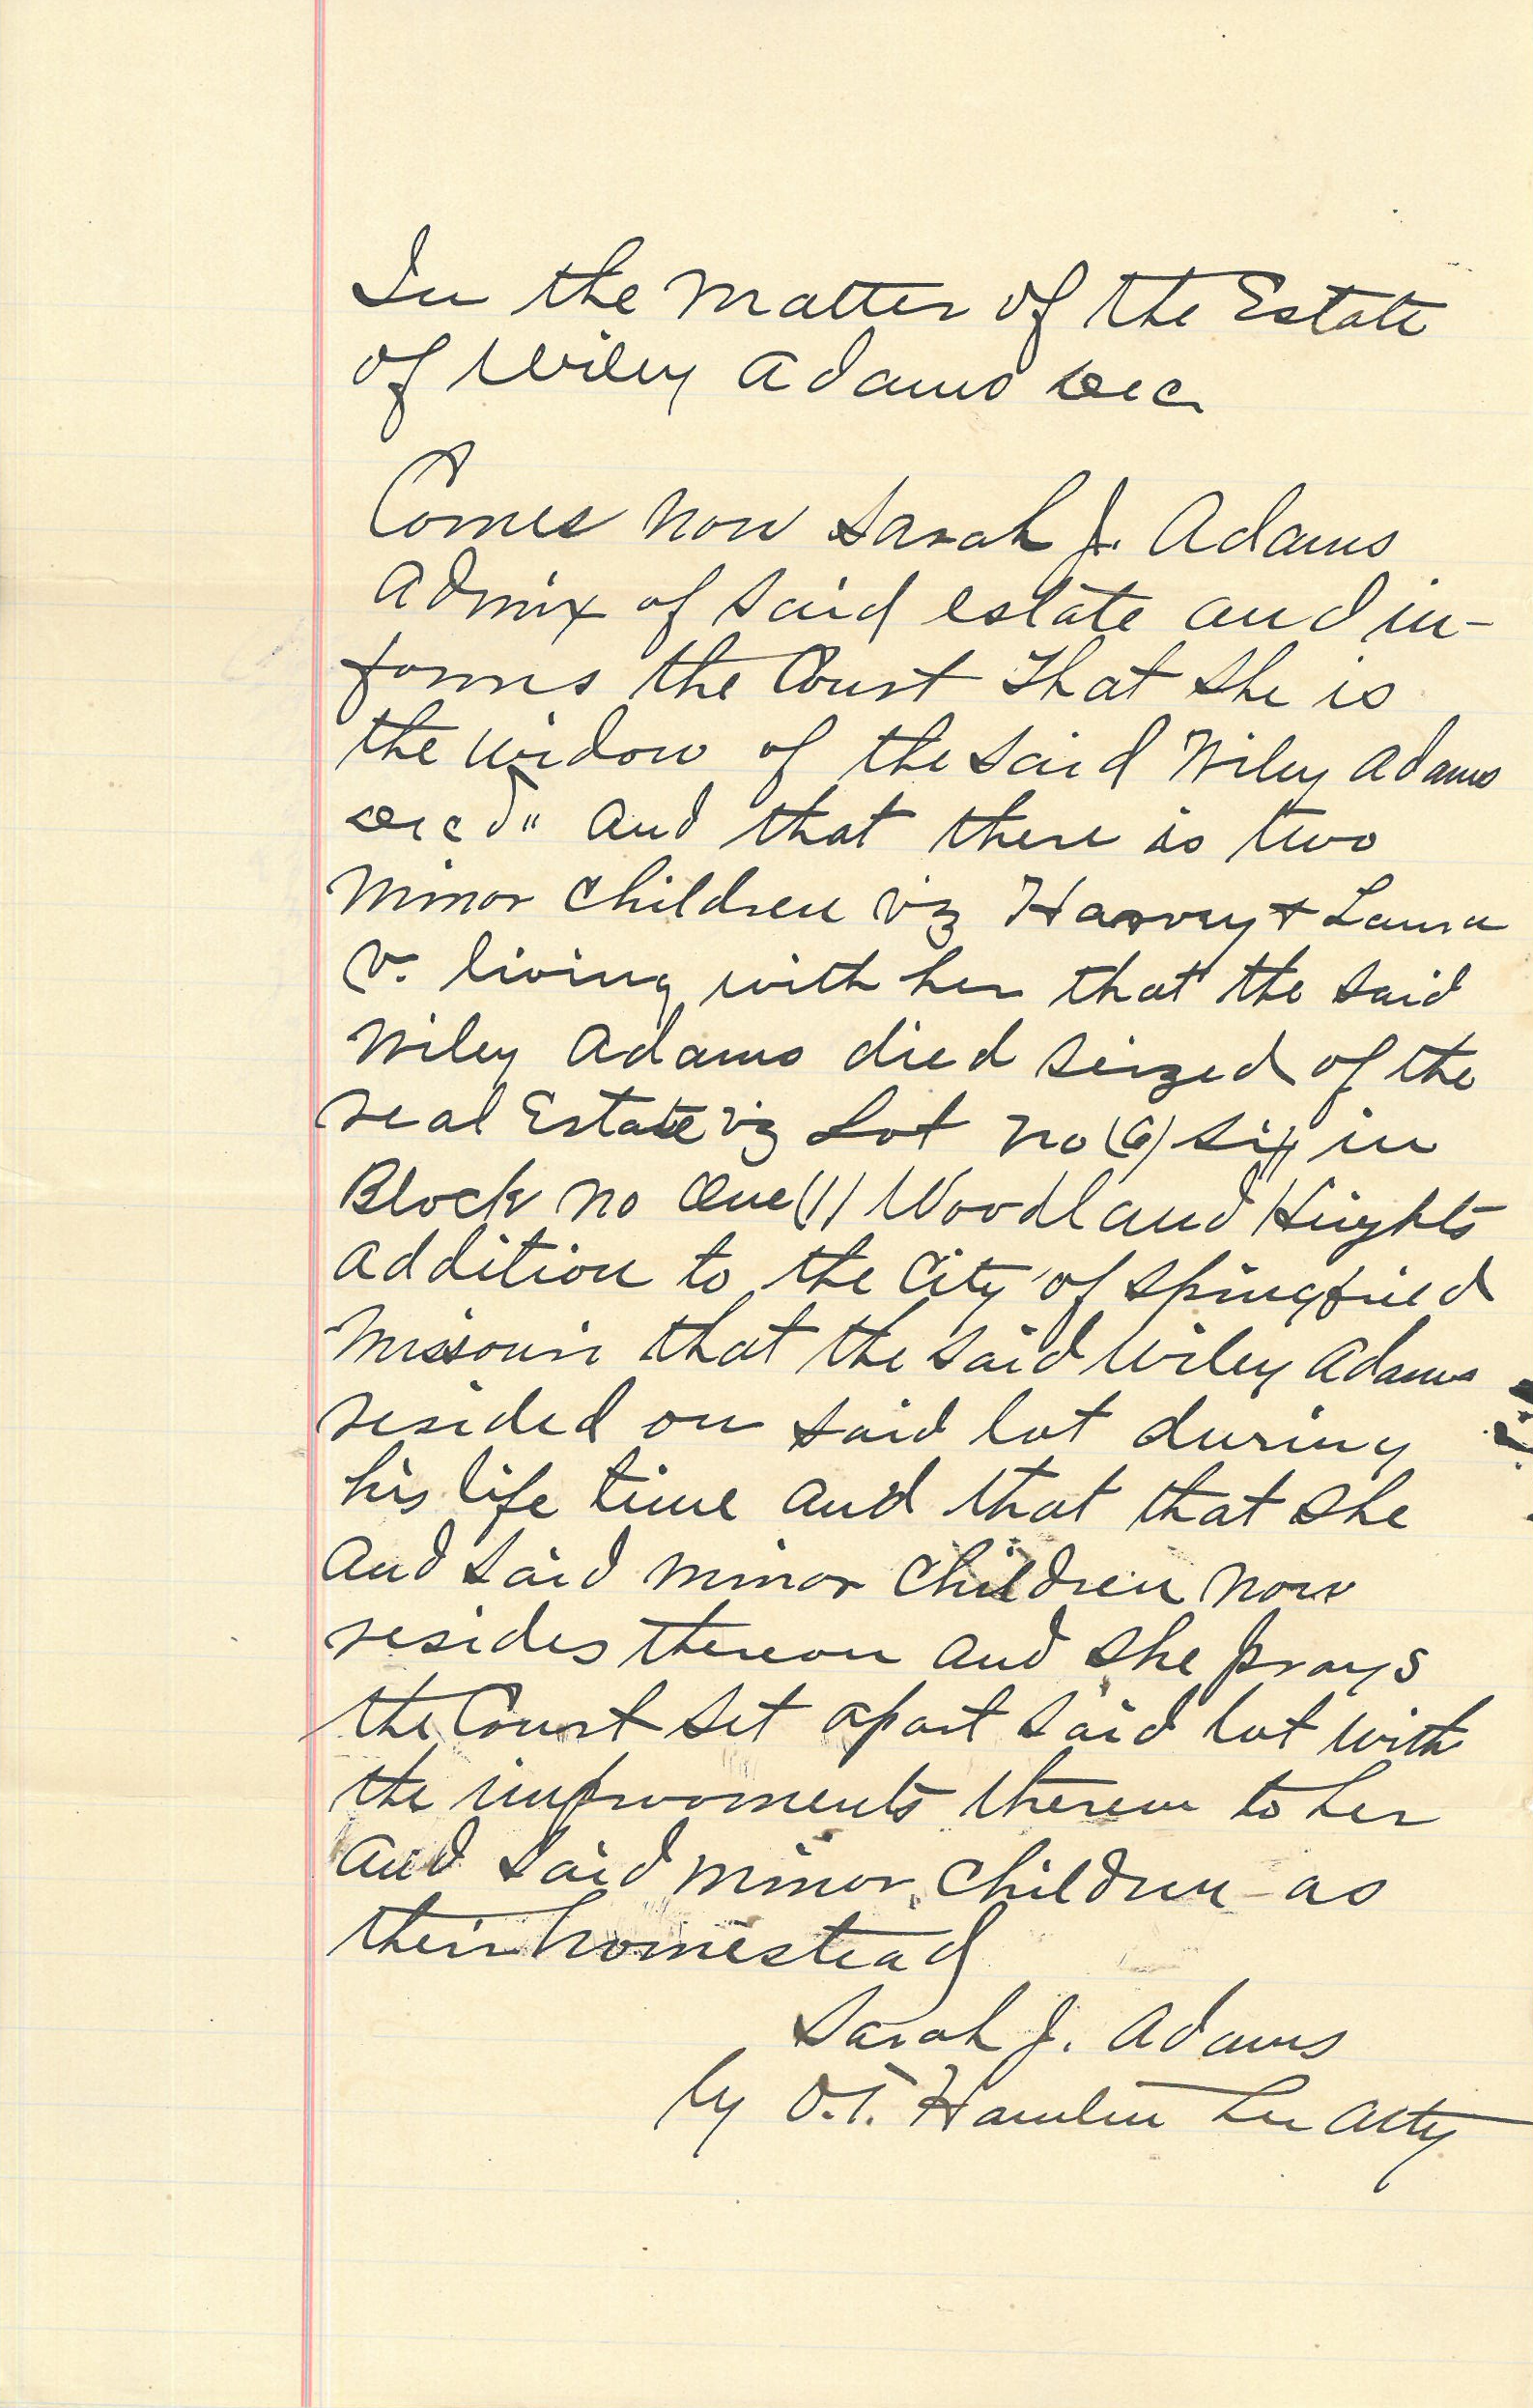 In the matter of the Estate
of Wiley Adams Dec
Comes now Sarah J. Adams
Admix of said estate and in-
forms the Court that she is
the widow of the said Wiley Adams
Decd" and that there is two
minor children viz Harvey + Laura
V. living with her that the said
Wiley Adams died seized of the
real Estate viz Lot no (6) six in
Block no One (1) Woodland Heights
addition to the City of Springfield
Missouri that the said Wiley Adams
resided on said lot during
his life time and that that she
and said minor children now
resides thereon and she prays
the Court set apart said lot with
the improvments thereon to her
and said minor children as
their homestead
Sarah J. Adams
by O.T. Hamlin her atty